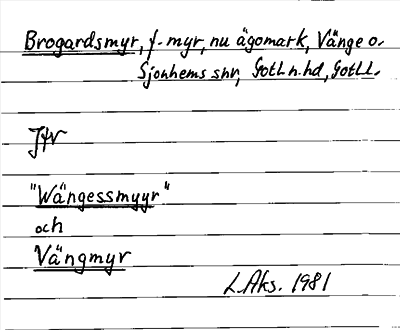 Brogardsmyr, f. myr, nu ägomark, Vänge o.
Sjonhems snr, Gotl. n. hd, Gotl l.
Jfr
"Wängessmyyr"
och
Vängmyr
L. Aks. 1981